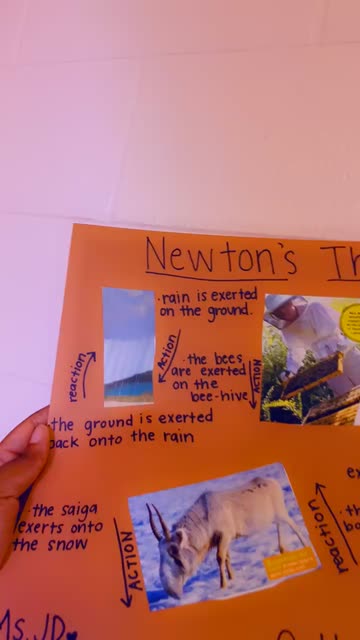 Newton's Th
·rain is exerted
on the ground.
Action
reaction
·the bees
are exerted
on the
bee-hive
ACTION
the ground is exerted
back onto the rain
·the saiga
exerts onto
the snow
ACTION
reaction
ex
·th
Ms. JD.